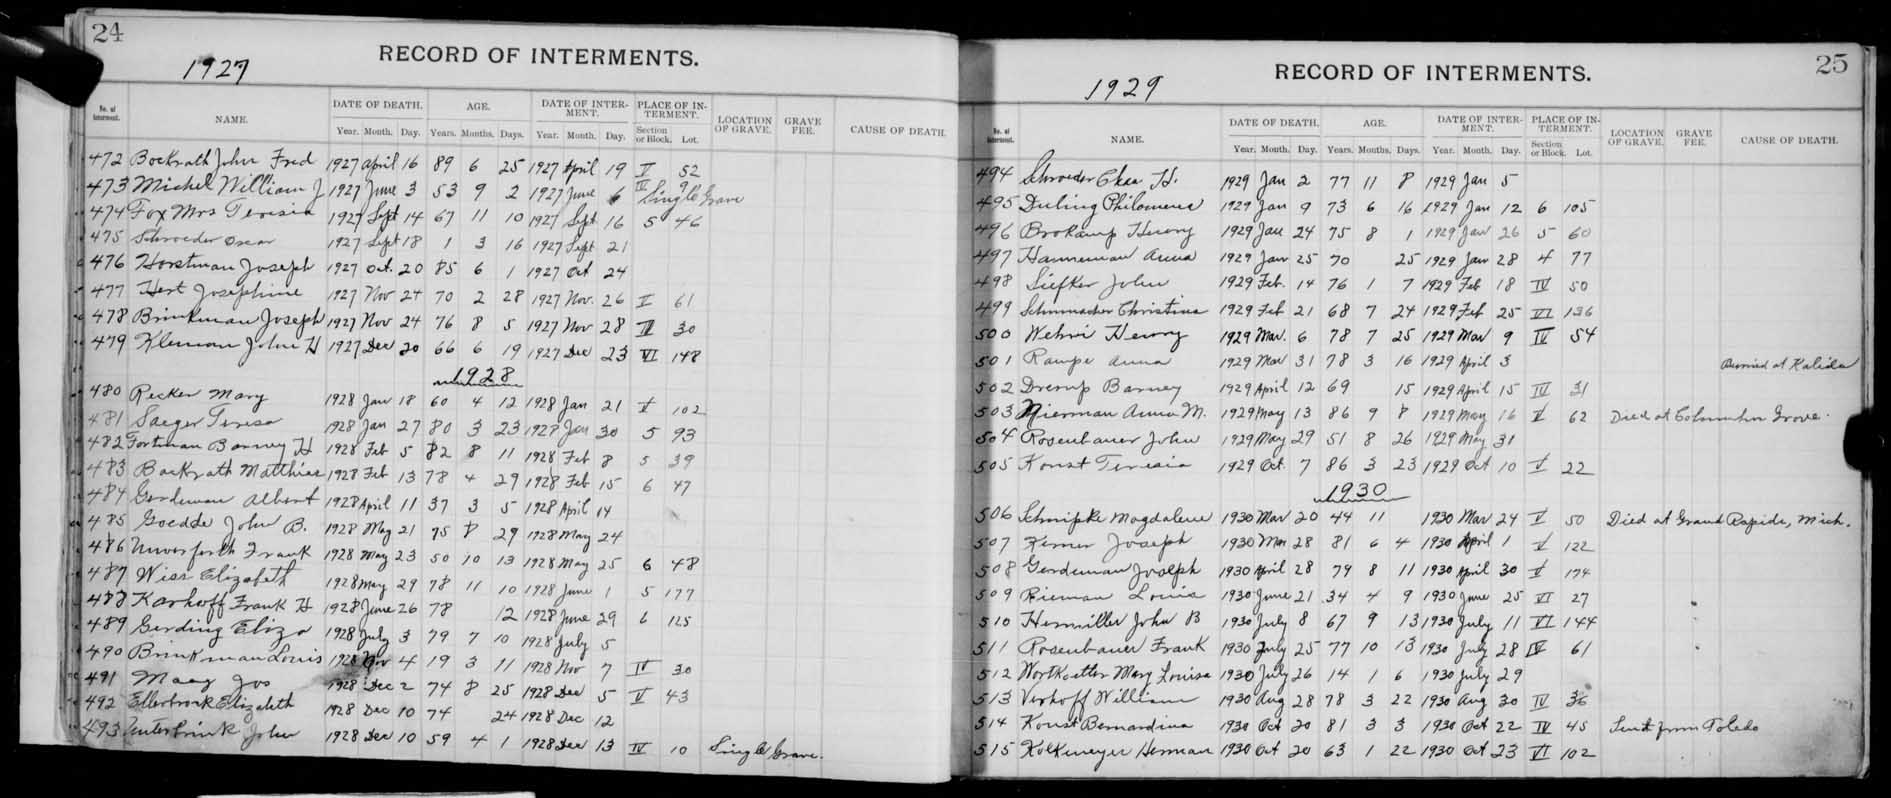 24
1927
RECORD OF INTERMENTS.
No. of Interment. NAME. DATE OF DEATH. Year. Month. Day. AGE. Years. Months. Days. DATE OF INTERMENT. Year. Month. Day. PLACE OF INTERMENT. Section or Block. Lot. LOCATION OF GRAVE. GRAVE FEE. CAUSE OF DEATH.
472 Bockrath John Fred 1927 April 16 89 6 25 1927 April 19 V 52
473 Michel William J 1927 June 3 53 9 2 1927 June 6 IV 9 Single Grave
474 Fox Mrs Teresia 1927 Sept 14 67 11 10 1927 Sept 16 5 46
475 Schroeder Oscar 1927 Sept 18 1 3 16 1927 Sept 21
476 Horstman Joseph 1927 Oct. 20 85 6 1 1927 Oct 24
477 Hert Josephine 1927 Nov 24 70 2 28 1927 Nov. 26 V 61
478 Brinkman Joseph 1927 Nov 24 76 8 5 1927 Nov 28 IV 30
479 Kleman John H 1927 Dec 20 66 6 19 1927 Dec 23 VI 148
1928
480 Recker Mary 1928 Jan 18 60 4 12 1928 Jan 21 V 102
481 Saeger Teresa 1928 Jan 27 80 3 23 1928 Jan 30 5 93
482 Fortman Barney H 1928 Feb 5 82 8 11 1928 Feb 8 5 39
483 Bockrath Matthias 1928 Feb 13 78 4 29 1928 Feb 15 6 47
484 Gerdeman Albert 1928 April 11 37 3 5 1928 April 14
485 Goedde John B. 1928 May 21 75 8 29 1928 May 24
486 Unverferth Frank 1928 May 23 50 10 13 1928 May 25 6 48
487 Wiss Elizabeth 1928 May 29 78 11 10 1928 June 1 5 177
488 Karhoff Frank H 1928 June 26 78 12 1928 June 29 6 125
489 Gerding Eliza 1928 July 3 79 7 10 1928 July 5
490 Brinkman Louis 1928 Nov 4 19 3 11 1928 Nov 7 IV 30
491 Maag Jos 1928 Dec 2 74 8 25 1928 Dec 5 V 43
492 Ellerbrock Elizabeth 1928 Dec 10 74 24 1928 Dec 12
493 Unterbrink John 1928 Dec 10 59 4 1 1928 Dec 13 IV 10 Single Grave.
25
1929
RECORD OF INTERMENTS.
No. of Interment. NAME. DATE OF DEATH. Year. Month. Day. AGE. Years. Months. Days. DATE OF INTERMENT. Year. Month. Day. PLACE OF INTERMENT. Section or Block. Lot. LOCATION OF GRAVE. GRAVE FEE. CAUSE OF DEATH.
494 Schroeder Chas H. 1929 Jan 2 77 11 8 1929 Jan 5
495 Duling Philomena 1929 Jan 9 73 6 16 1929 Jan 12 6 105
496 Brokamp Henry 1929 Jan 24 75 8 1 1929 Jan 26 5 60
497 Hanneman Anna 1929 Jan 25 70 25 1929 Jan 28 4 77
498 Siefker John 1929 Feb. 14 76 1 7 1929 Feb 18 IV 50
499 Schumacher Christina 1929 Feb 21 68 7 24 1929 Feb 25 VI 136
500 Wehri Henry 1929 Mar. 6 78 7 25 1929 Mar 9 IV 54
501 Rampe Anna 1929 Mar 31 78 3 16 1929 April 3 Burried at Kalida
502 Drerup Barney 1929 April 12 69 15 1929 April 15 IV 31
503 Nierman Anna M. 1929 May 13 86 9 8 1929 May 16 V 62 Died at Columbus Grove.
504 Rosenbauer John 1929 May 29 51 8 26 1929 May 31
505 Konst Teresia 1929 Oct. 7 86 3 23 1929 Oct 10 V 22
1930
506 Schnipke Magdalene 1930 Mar 20 44 11 1930 Mar 24 V 50 Died at Grand Rapids, Mich.
507 Kerner Joseph 1930 Mar 28 81 6 4 1930 April 1 V 122
508 Gerdeman Joseph 1930 April 28 79 8 11 1930 April 30 V 174
509 Rieman Louis 1930 June 21 34 4 9 1930 June 25 VI 27
510 Hermiller John B 1930 July 8 67 9 13 1930 July 11 VI 144
511 Rosenbauer Frank 1930 July 25 77 10 13 1930 July 28 IV 61
512 Wortkoetter Mary Louisa 1930 July 26 14 1 6 1930 July 29
513 Verhoff William 1930 Aug 28 78 3 22 1930 Aug 30 IV 36
514 Konst Bernardina 1930 Oct 20 81 3 3 1930 Oct 22 IV 45 Sent from Toledo
515 Kolkmeyer Herman 1930 Oct 20 63 1 22 1930 Oct 23 VI 102